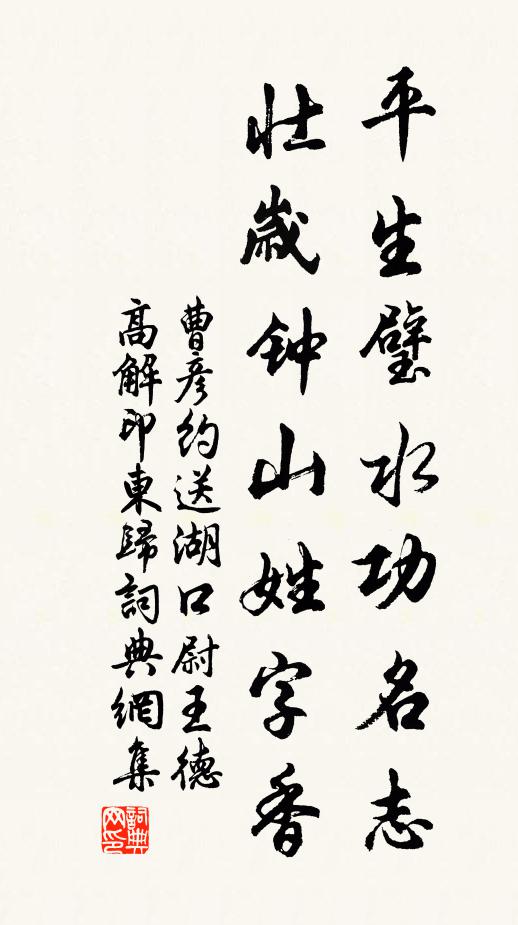 平生璧水功名志
壮歲钟山姓字香
曹彦約送湖口尉王德
高解印東歸詞典網集
詞典网印